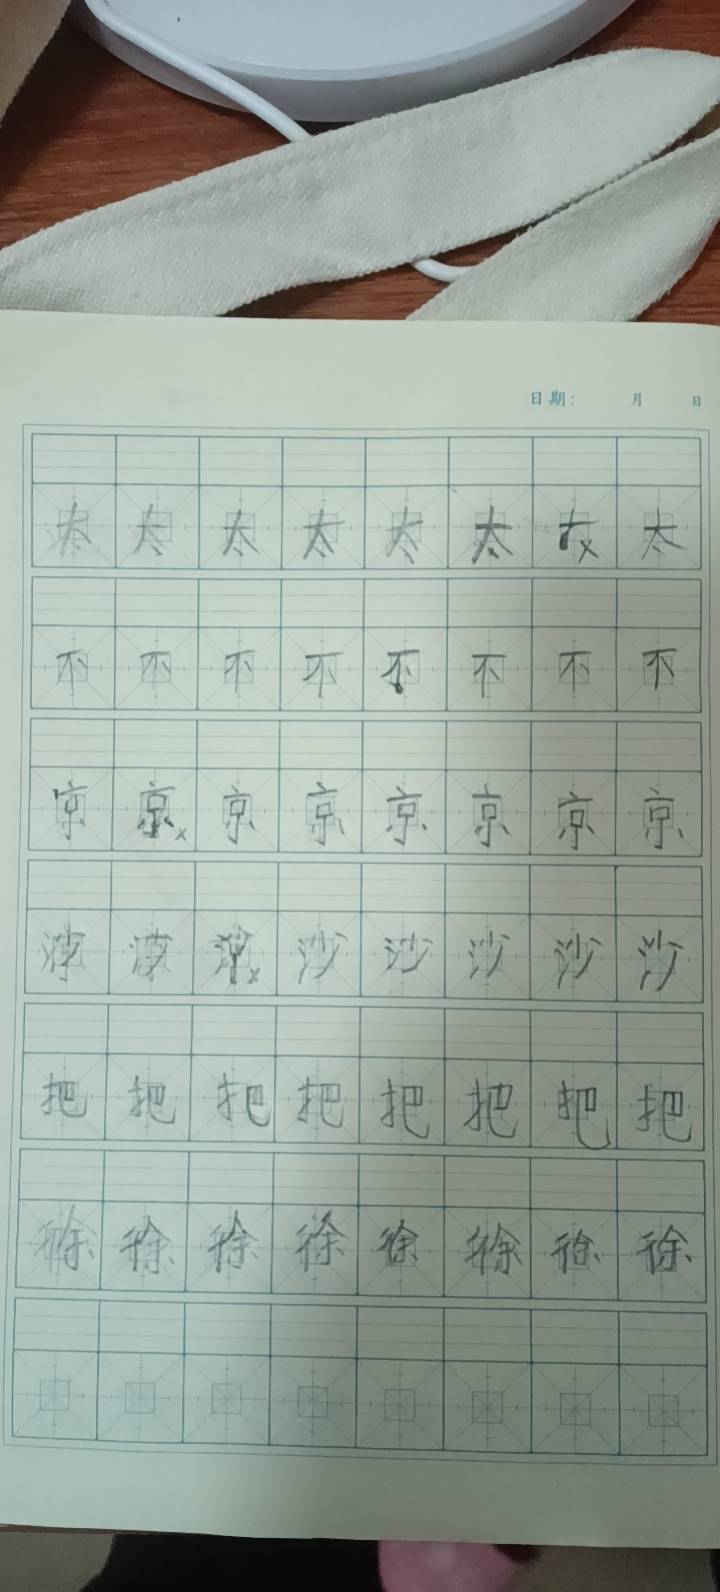 日期： 月 日
太 太 太 太 太 太 太
不 不 不 不 不 不 不 不
京 京 x 京 京 京 京 京 京
x 沙 沙 沙 沙 沙
把 把 把 把 把 把 把 把
徐 徐 徐 徐 徐 徐 徐 徐